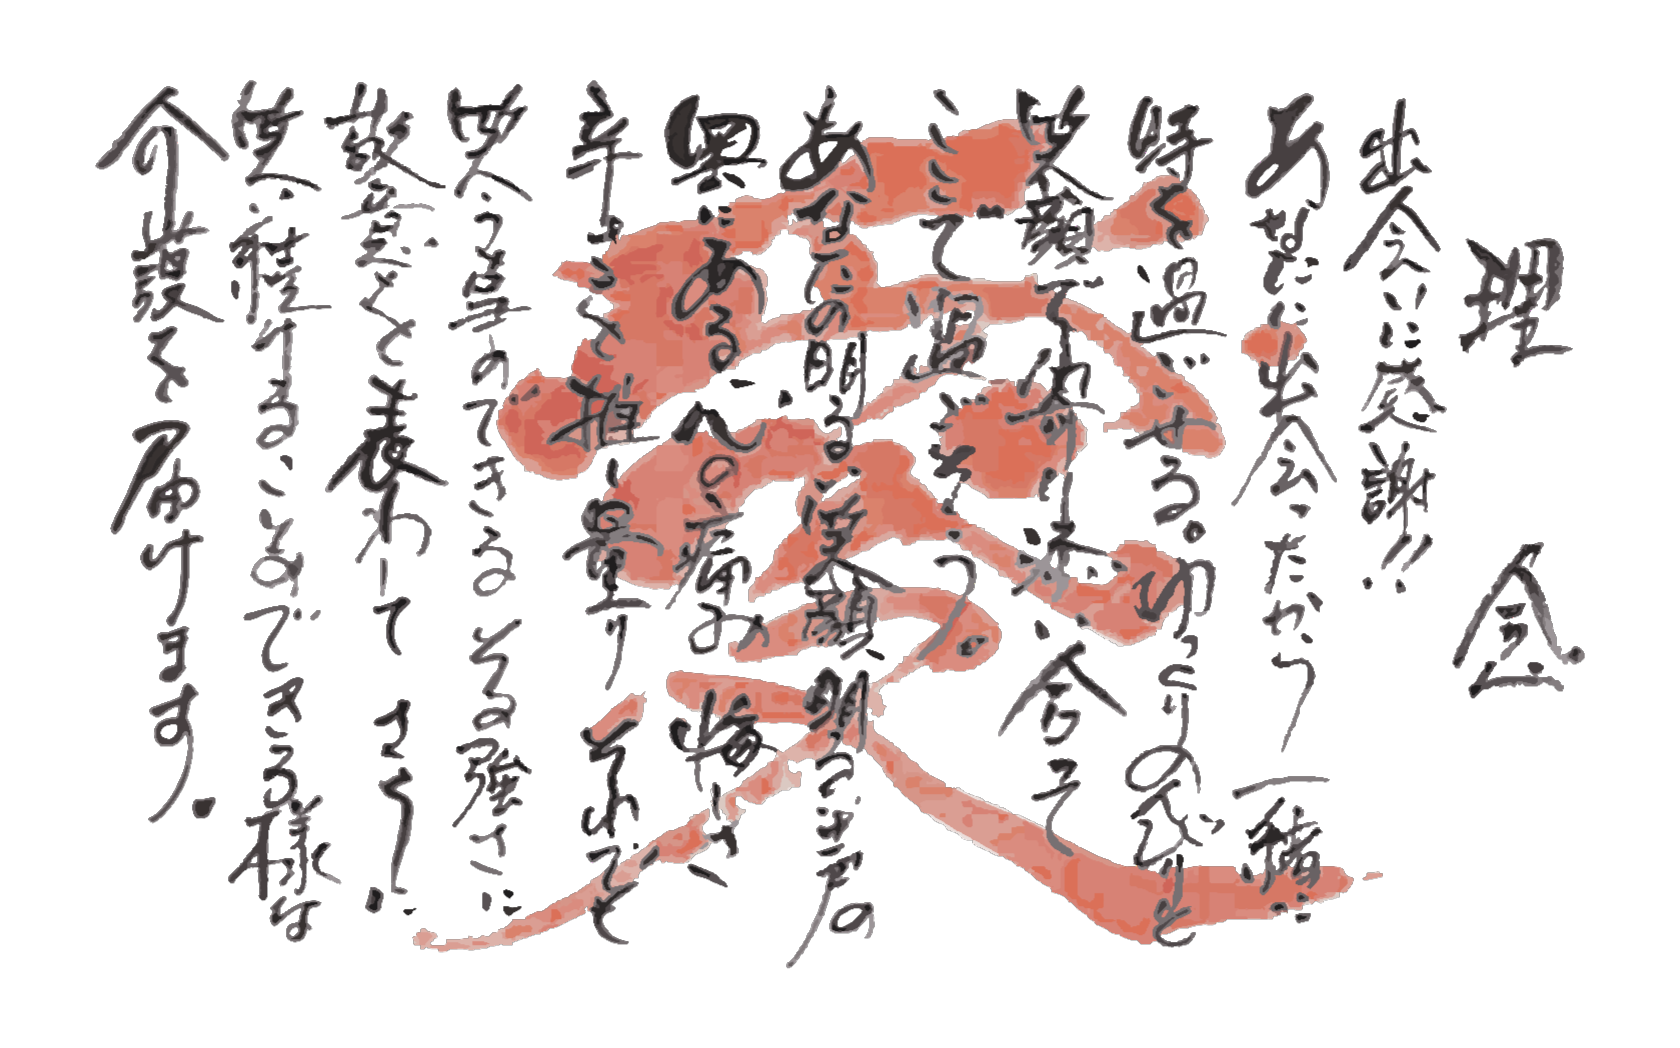 理念
出会いに感謝!!
あなたに出会ったから 一緒に
時を過ごせる。ゆっくりのんびりと
笑顔で寄り添い合って
ここで過ごそう。
あなたの明るい笑顔 明るい声の
奥にある、心の痛み 悔しさ
辛さを推し量り それでも
笑う事のできる その強さに
敬意を表わして さらに
笑い続けることができる様な
介護を届けます。